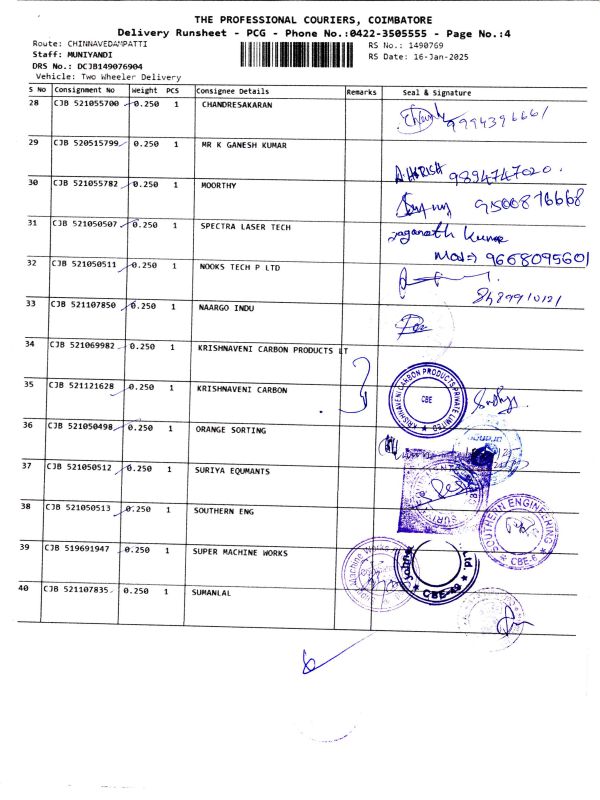 THE PROFESSIONAL COURIERS, COIMBATORE
Delivery Runsheet - PCG - Phone No.:0422-3505555 - Page No.:4
Route: CHINNAVEDAMPATTI RS No.: 1490769
Staff: MUNIYANDI RS Date: 16-Jan-2025
DRS No.: DCJB149076904
Vehicle: Two Wheeler Delivery
S No Consignment No Weight PCS Consignee Details Remarks Seal & Signature
28 CJB 521055700 0.250 1 CHANDRESAKARAN
9994396661
29 CJB 520515799 0.250 1 MR K GANESH KUMAR
9894747020.
30 CJB 521055782 0.250 1 MOORTHY
9500876668
31 CJB 521050507 0.250 1 SPECTRA LASER TECH
Jaganath Kumar
9668095601
32 CJB 521050511 0.250 1 NOOKS TECH P LTD
33 CJB 521107850 0.250 1 NAARGO INDU
34 CJB 521069982 0.250 1 KRISHNAVENI CARBON PRODUCTS LT
35 CJB 521121628 0.250 1 KRISHNAVENI CARBON
KRISHNAVENI CARBON PRODUCTS PRIVATE LIMITED
CBE
36 CJB 521050498 0.250 1 ORANGE SORTING
37 CJB 521050512 0.250 1 SURIYA EQUMANTS
38 CJB 521050513 0.250 1 SOUTHERN ENG
SOUTHERN ENGINEERING
CBE-6
39 CJB 519691947 0.250 1 SUPER MACHINE WORKS
CBE-49
40 CJB 521107835 0.250 1 SUMANLAL